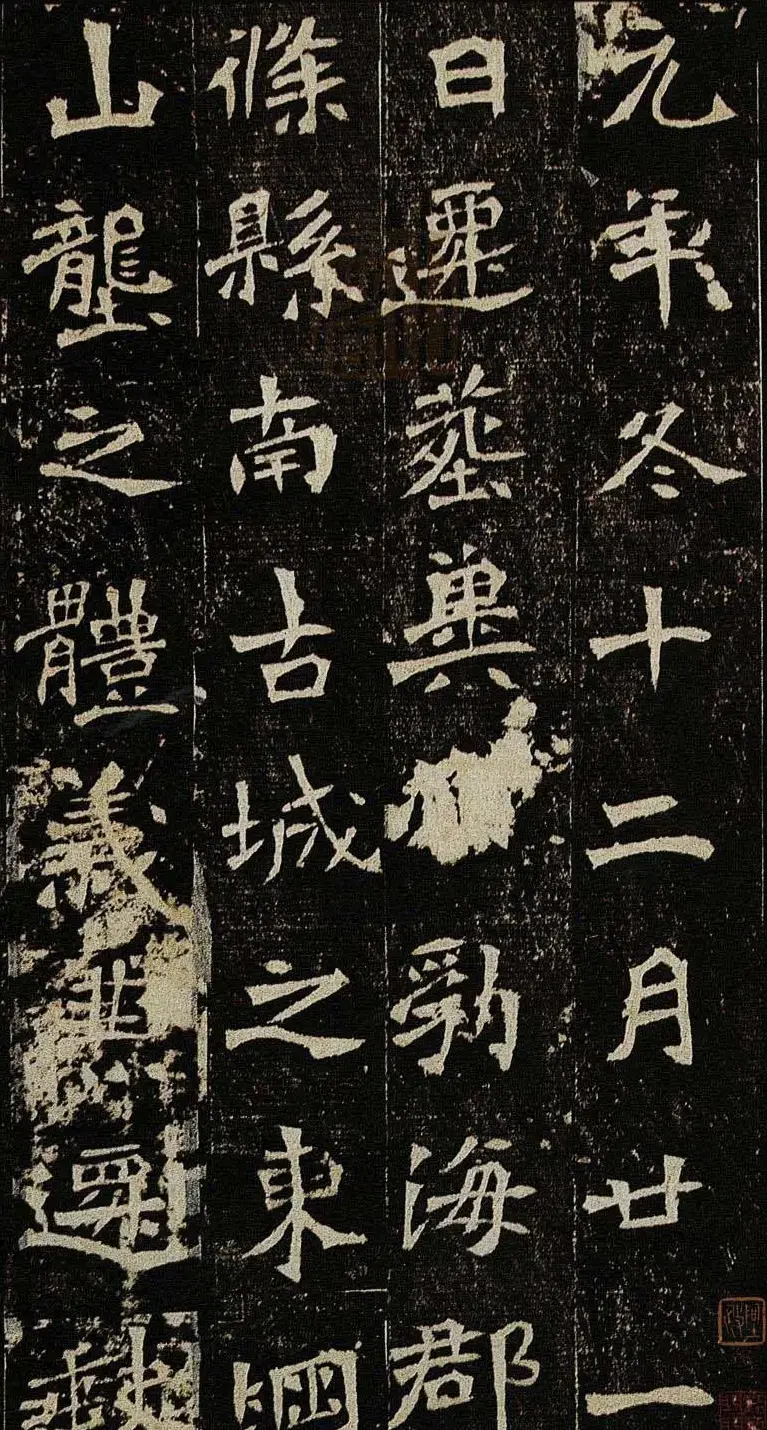 元年冬十二月廿一
日遷塟兾勃海郡
條縣南古城之東
山壟之體義遷